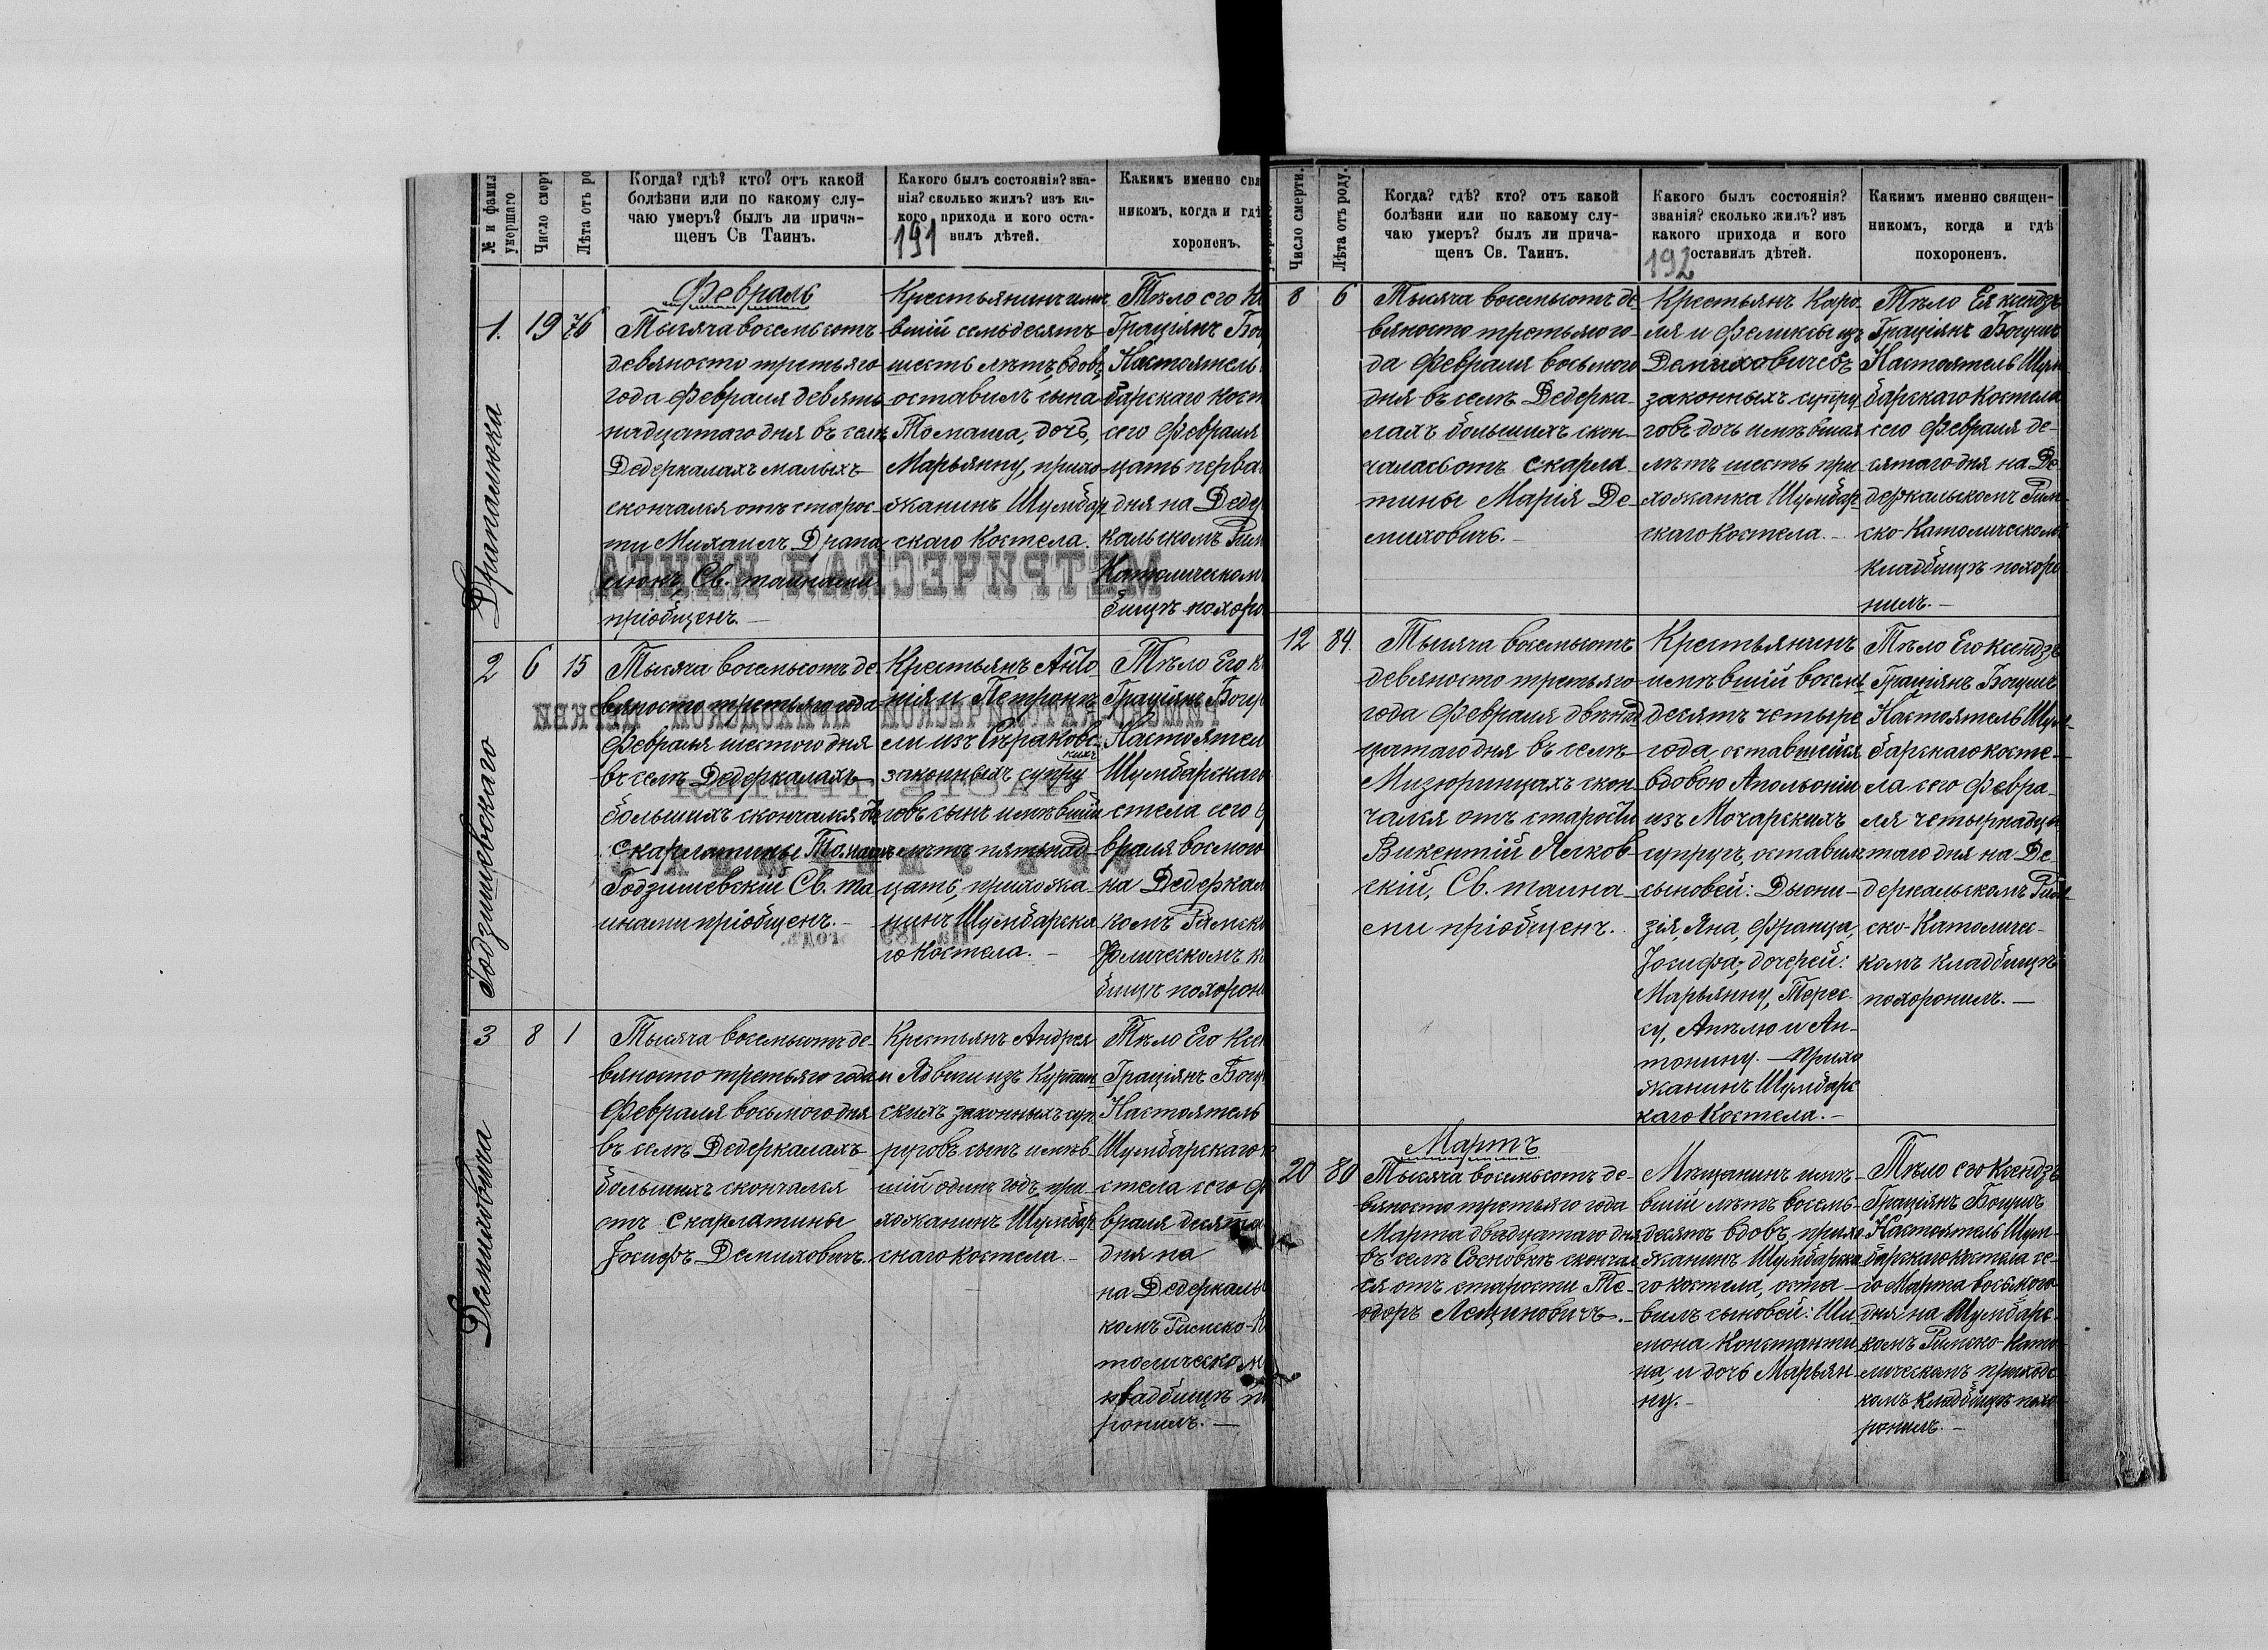 № и фамил
умершаго
Число смер
Лѣта отъ ро
Когда? гдѣ? кто? отъ какой
болѣзни или по какому слу-
чаю умеръ? былъ ли прича-
щенъ Св Таинъ.
Какого былъ состоянія? зва-
нія? сколько жилъ? изъ ка-
кого прихода и кого оста-
вилъ дѣтей.
191
Какимъ именно свя
никомъ, когда и гдѣ
хороненъ.
Драпалюка
1.
19
76
Февраль
Тысяча восемьсотъ
девяносто третьяго
года Февраля девять
надцатаго дня въ селѣ
Дедеркалахъ малыхъ
скончался отъ старос-
ти Михаилъ Драпа
люкъ, Св. таинами
пріобщенъ.
Крестьянинъ имѣ
вшій семьдесятъ
шесть лѣтъ, вдовъ,
оставилъ сына
Томаша, дочь,
Марьянну, прихо-
жанинъ Шумбар
скаго Костела.
Тѣло его К
Граціянъ Бо
Настоятель
барскаго Кост
сего Февраля
цать перва
дня на Деде
кальскомъ Рим
Католическом
бищѣ похоро
МЕТРИЧЕСКАЯ КНИГА
Годзишевскаго
2
6
15
Тысяча восемьсотъ де-
вяносто третьяго года
Февраля шестого дня
въ селѣ Дедеркалахъ
большихъ скончался отъ
скарлатины Томашъ
Годзишевскій Св. та
инами пріобщенъ.
Крестьянъ Анто
нія и Петронѣ
ли изъ Сѣраковс-
кихъ
законныхъ супру
говъ сынъ имѣвшій
лѣтъ пятьнад-
цать, прихожа-
нинъ Шумбарска
го Костела.
Тѣло Его К
Граціянъ Богу
Настоятел
Шумбарскаго
стела сего Ф
враля восьмого
на Дедеркал
комъ Римско
толическомъ к
бищѣ похорон
РИМСКО-КАТОЛИЧЕСКОЙ ПРИХОДСКОЙ ЦЕРКВИ
На 189 годъ.
Демиховича
3
8
1
Тысяча восемьсотъ де-
вяносто третьяго года
Февраля восьмого дня
въ селѣ Дедеркалахъ
большихъ скончался
отъ скарлатины
Іосифъ Демиховичъ.
Крестьянъ Андрея
и Ядвиги изъ
скихъ законныхъ суп
руговъ сынъ имѣв
шій одинъ годъ, при-
хожанинъ Шумбар
скаго костела.
Тѣло Его Ксе
Граціянъ Богу
Настоятель
Шумбарскаго
стела сего Ф
враля десята
дня на
на Дедеркаль
комъ Римско-К
толическом
кладбищѣ по
ронилъ.
Число смерти.
Лѣта отъ роду.
Когда? гдѣ? кто? отъ какой
болѣзни или по какому слу-
чаю умеръ? былъ ли прича-
щенъ Св. Таинъ.
Какого былъ состоянія?
званія? сколько жилъ? изъ
какого прихода и кого
оставилъ дѣтей.
192
Какимъ именно священ-
никомъ, когда и гдѣ
похороненъ.
8
6
Тысяча восемьсотъ де-
вяносто третьяго го-
да Февраля восьмого
дня въ селѣ Дедерка-
лахъ большихъ скон-
чалась отъ скарла-
тины Марія Де-
миховичъ.
Крестьянъ Каро-
ля и Феликсы изъ
Демиховичевъ
законныхъ супру
говъ дочь имѣвшая
лѣтъ шесть при
хожанка Шумбар
скаго Костела.
Тѣло Ея ксендзъ
Граціянъ Богушъ
Настоятель Шум-
барскаго Костела
сего Февраля де-
сятаго дня на Де-
деркальскомъ Рим-
ско-Католическомъ
кладбищѣ похоро
нилъ.
12
84
Тысяча восемьсотъ
девяносто третьяго
года Февраля двѣнад
цатаго дня въ селѣ
Мизюринцахъ скон-
чался отъ старости
Викентій Ясков-
скій, Св. таина-
ми пріобщенъ.
Крестьянинъ
имѣвшій восемь
десятъ четыре
года, оставшейся
вдовою Апольоніи
изъ Мочарскихъ
супругъ, оставилъ
сыновей: Діони-
зія, Яна, Франца,
Іосифа; дочерей:
Марьянну, Терес-
су, Анѣлю и Ан-
тонину. прихо
жанинъ Шумбарс
каго Костела.
Тѣло Его Ксендзъ
Граціянъ Богушъ
Настоятель Шум-
барскаго Косте-
ла сего Февра-
ля четырнадца
таго дня на Де-
деркальскомъ Рим
ско-Католичес-
комъ кладбищѣ
похоронилъ.
20
80
Мартъ
Тысяча восемьсотъ де-
вяносто третьяго года
Марта двадцатаго дня
въ селѣ Сосновкѣ скончал
ся отъ старости Те-
одоръ Лещиновичъ.
Мѣщанинъ имѣ-
вшій лѣтъ восемь-
десятъ вдовъ, прихо
жанинъ Шумбарска
го костела, оста-
вилъ сыновей: Ши-
мона Константи
на, и дочь Марьян
ну.
Тѣло его Ксендзъ
Граціянъ Богушъ
Настоятель Шум-
барскаго костела се-
го Марта восьмого
дня на Шумбарс-
комъ Римско-Като
лическомъ приходс
комъ кладбищѣ похо
ронилъ.